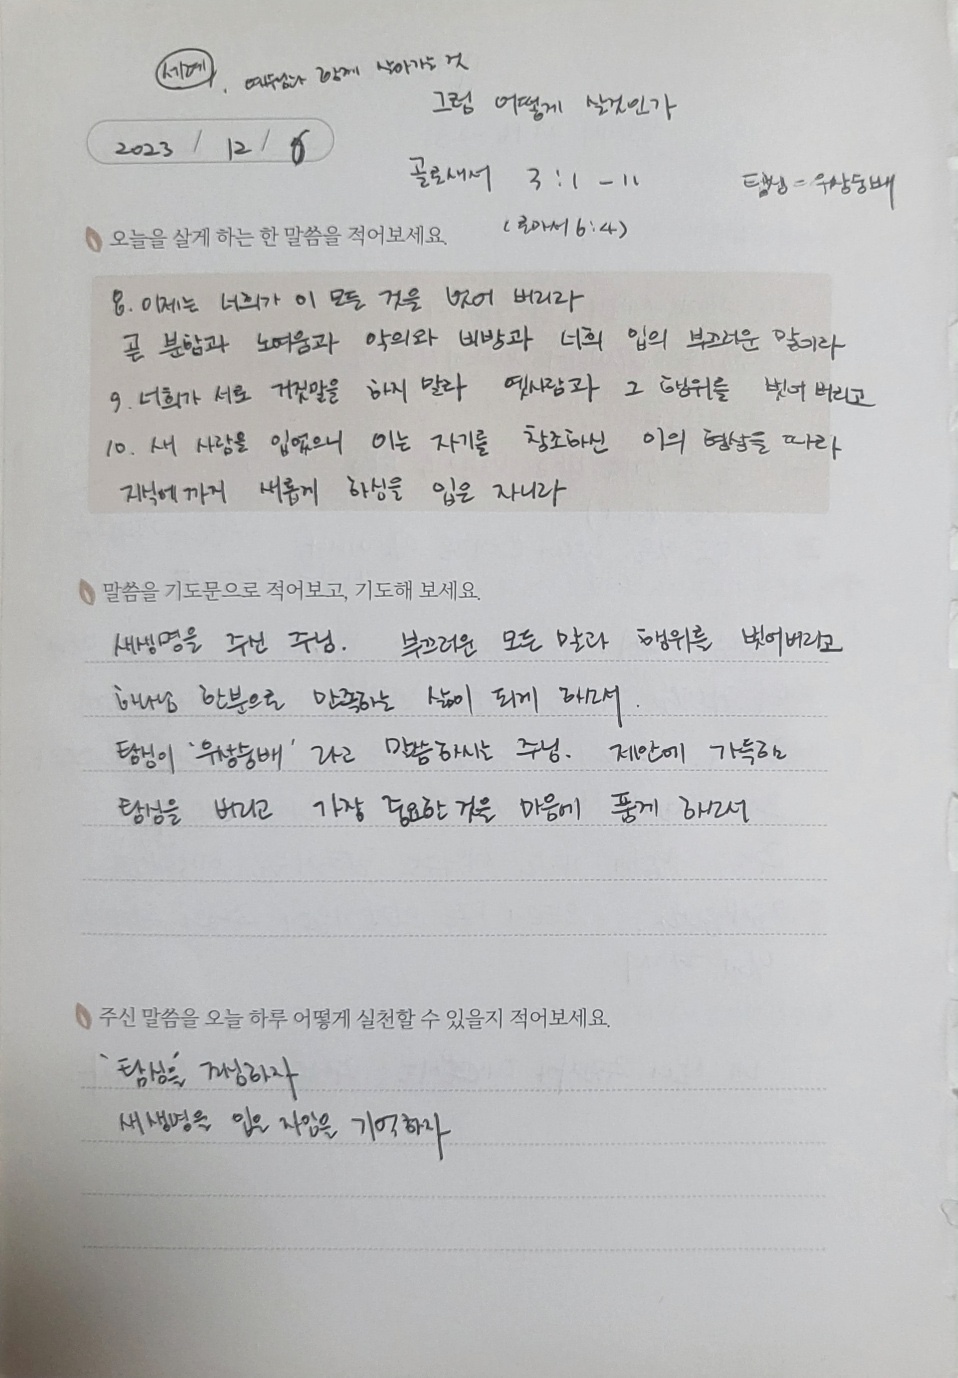 세례. 예수님과 함께 살아가는 것
그럼 어떻게 살것인가
2023 / 12 / 6
골로새서 3:1 - 11
탐심 = 우상숭배
(로마서 6:4)
오늘을 살게 하는 한 말씀을 적어보세요.
8. 이제는 너희가 이 모든 것을 벗어 버리라
곧 분함과 노여움과 악의와 비방과 너희 입의 부끄러운 말이라
9. 너희가 서로 거짓말을 하지 말라 옛사람과 그 행위를 벗어 버리고
10. 새 사람을 입었으니 이는 자기를 창조하신 이의 형상을 따라
지식에까지 새롭게 하심을 입은 자니라
말씀을 기도문으로 적어보고, 기도해 보세요.
새생명을 주신 주님. 부끄러운 모든 말과 행위를 벗어버리고
하나님 한분으로 만족하는 삶이 되게 하소서.
탐심이 '우상숭배' 라고 말씀하시는 주님. 제안에 가득한
탐심을 버리고 가장 중요한 것을 마음에 품게 하소서
주신 말씀을 오늘 하루 어떻게 실천할 수 있을지 적어보세요.
'탐심을' 조심하자
새생명을 입은 자임을 기억하자